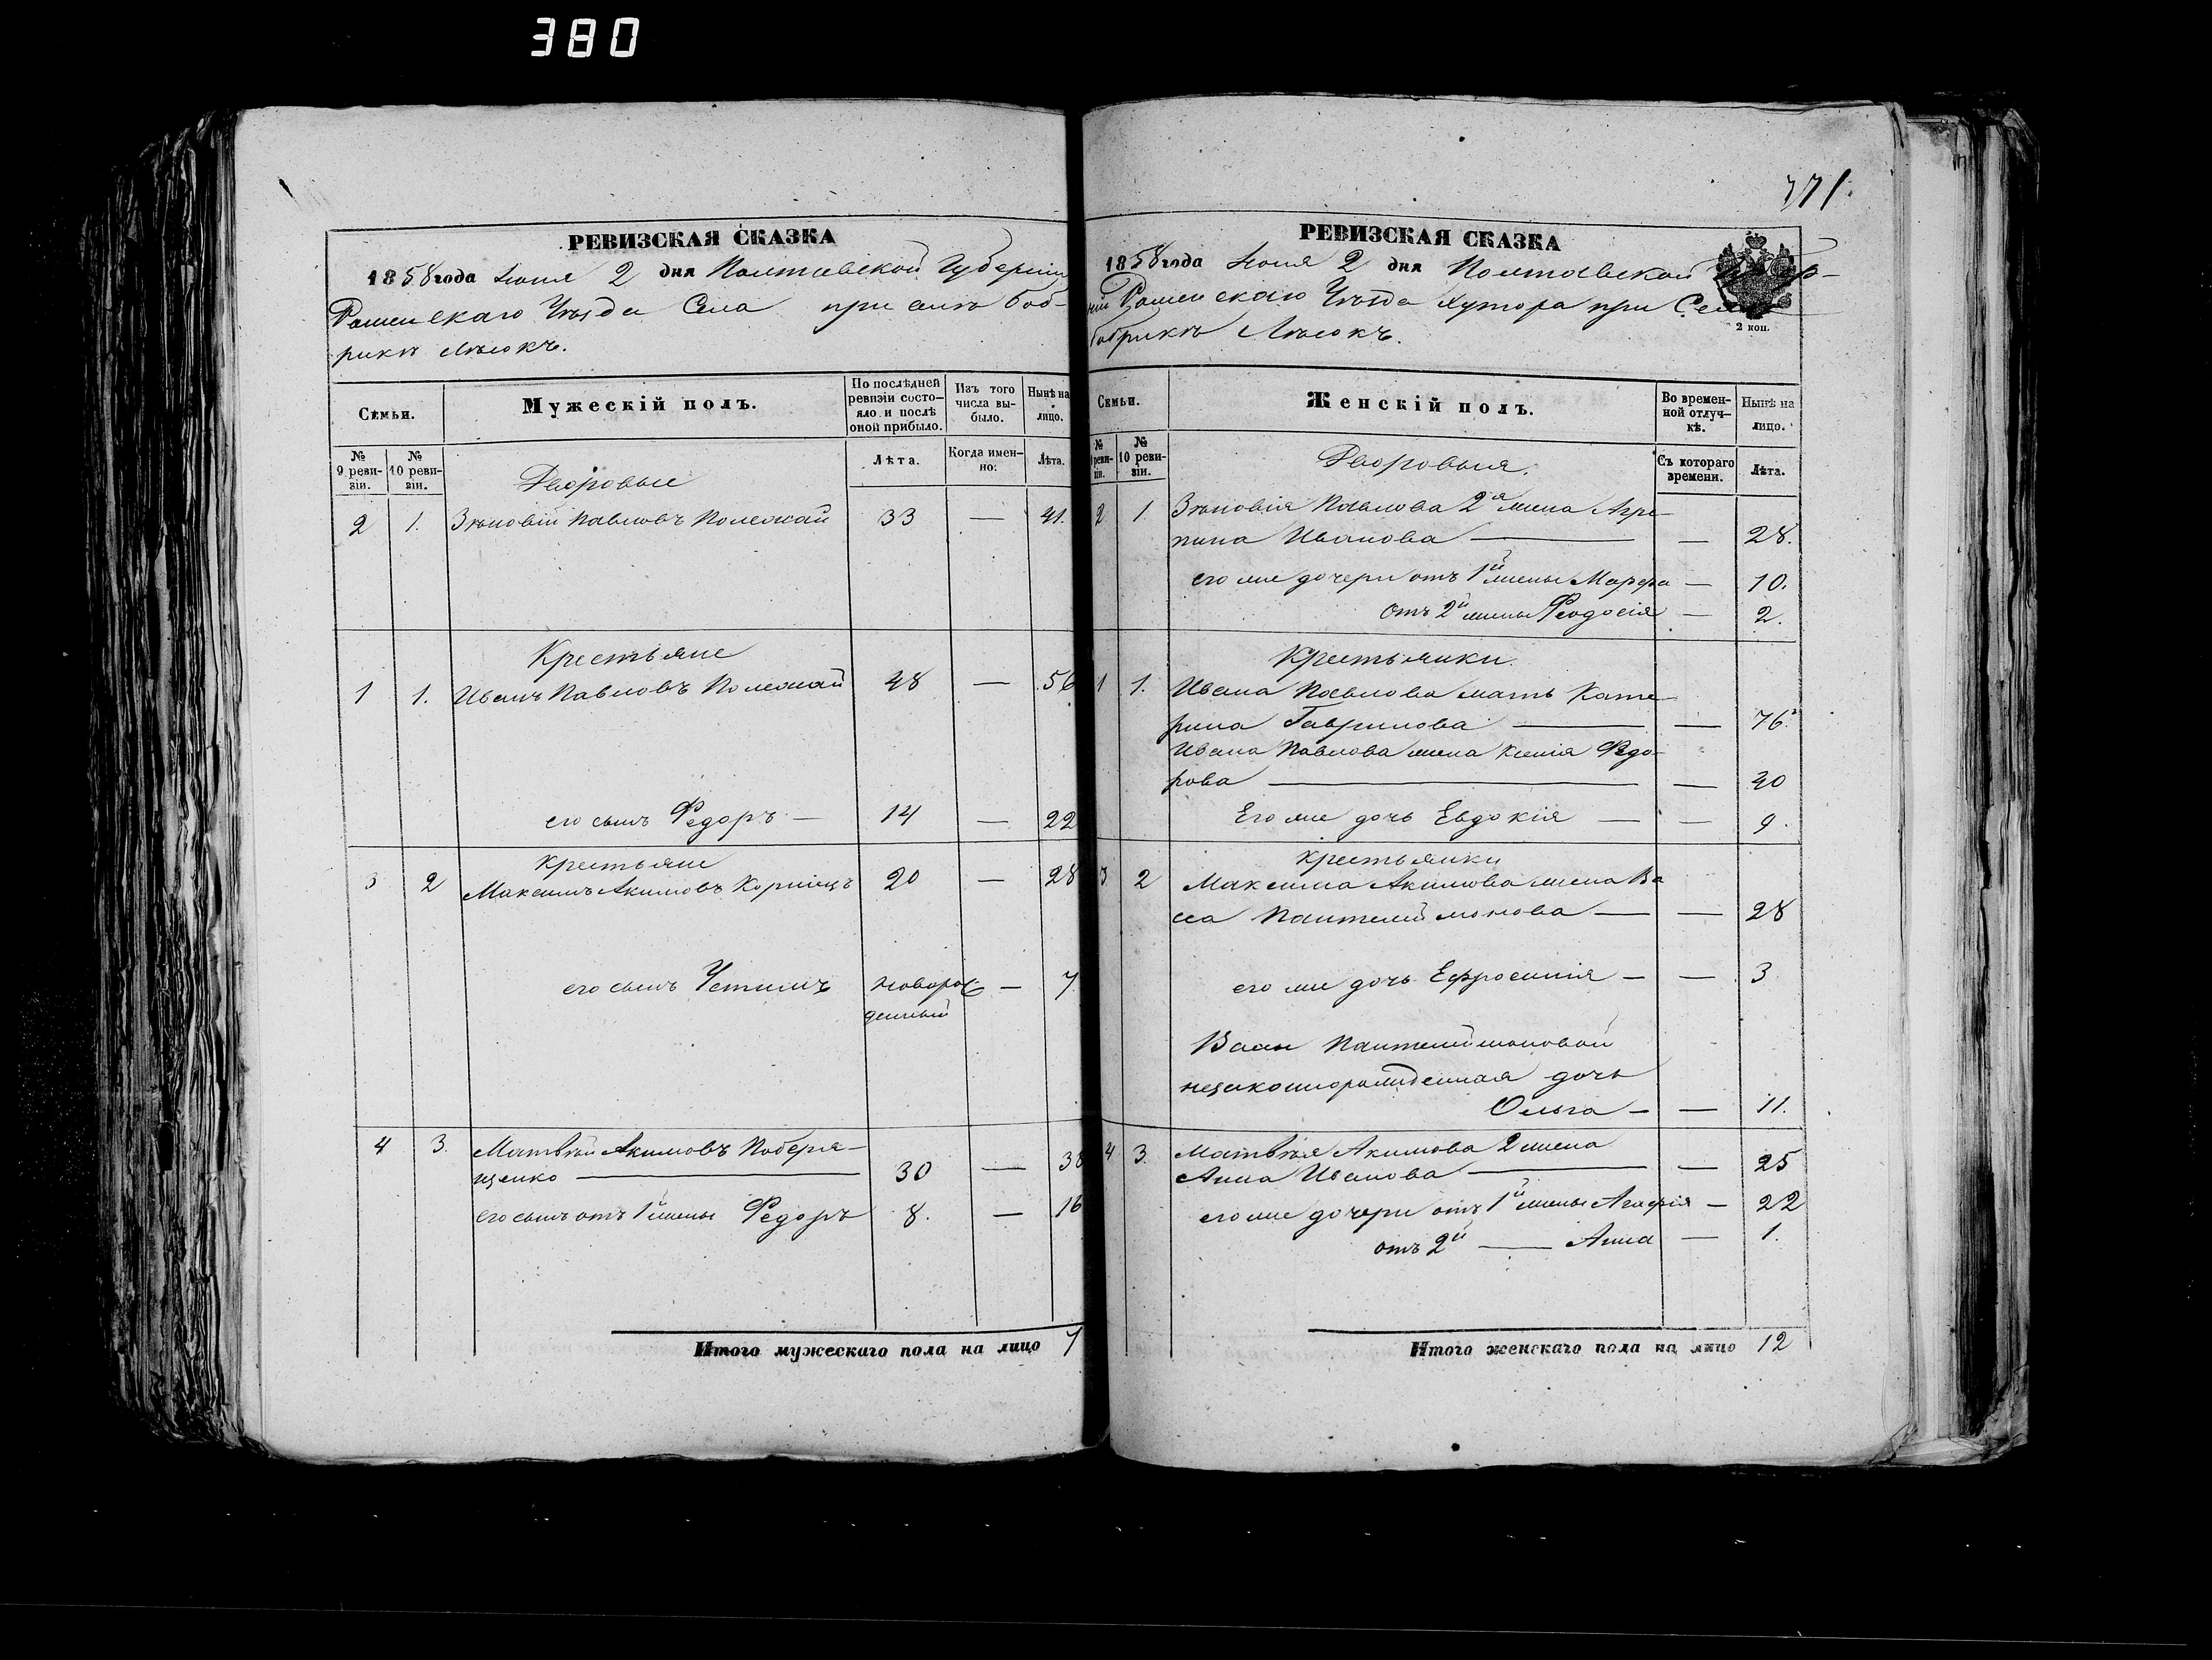 380
371.
РЕВИЗСКАЯ СКАЗКА
1858 года Іюня 2 дня Полтавской Губерніи
Роменскаго Уѣзда Села при селѣ Боб-
рикѣ Лѣсокъ.
Семьи.
Мужескій полъ.
По послѣдней ревизіи состо-
яло и послѣ оной прибыло.
Изъ того числа вы-
было.
Нынѣ на лицо.
№ 9 реви-
зіи.
№ 10 реви-
зіи.
Лѣта.
Когда имен-
но.
Лѣта.
Дворовые
2 1. Зѣновій Павловъ Полежай 33 — 41.
Крестьяне
1 1. Иванъ Павловъ Полежай 48 — 56
его сынъ Федоръ — 14 — 22
Крестьяне
3 2 Максимъ Акимовъ Корніецъ 20 — 28
его сынъ Устимъ новорож-
денный — 7
4 3. Матвѣй Акимовъ Поберя-
щенко — 30 — 38
его сынъ отъ 1й жены Федоръ 8. — 16
Итого мужескаго пола на лицо 7
РЕВИЗСКАЯ СКАЗКА
1858 года Іюня 2 дня Полтавской Губер-
ніи Роменскаго Уѣзда Хутора при Селѣ
Бобрикѣ Лѣсокъ.
2 коп.
Семьи.
Женскій полъ.
Во времен-
ной отлуч-
кѣ.
Нынѣ на лицо.
№ 9 реви-
зіи.
№ 10 реви-
зіи.
Съ котораго времени.
Лѣта.
Дворовыя.
2 1. Зѣновія Павлова 2я жена Агре-
пина Иванова — — 28.
его же дочери отъ 1й жены Марфа — 10.
отъ 2й жены Феодосія — 2.
Крестьянки.
1 1. Ивана Павлова мать Кате-
рина Гаврилова — — 76.
Ивана Павлова жена Ксенія Федо-
рова — — 40
Его же дочь Евдокія — — 9.
Крестьянки
3 2 Максима Акимова жена Ва
сса Пантелиймонова — — 28
его же дочь Ефросинія — — 3
Вассы Пантелиймоновой
незаконнорожденная дочь
Ольга — — 11.
4 3. Матвѣя Акимова 2 жена
Анна Иванова — — 25
его же дочери отъ 1й жены Агафія — 22
отъ 2й — Анна — 1.
Итого женскаго пола на лицо 12